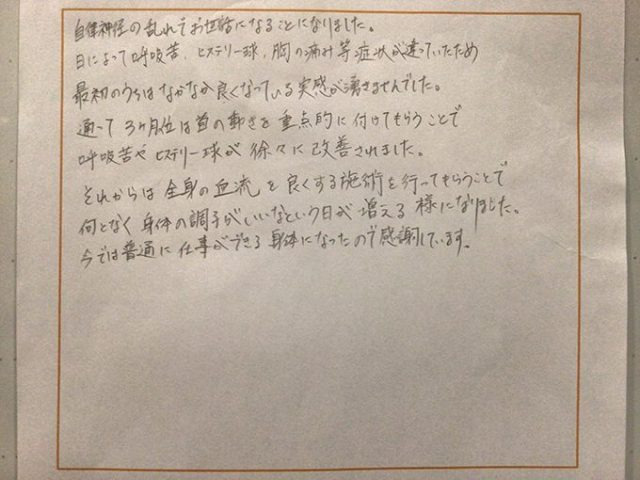 自律神経の乱れでお世話になることになりました。
日によって呼吸苦、ヒステリー球、胸の痛み等症状が違っていたため
最初のうちはなかなか良くなっている実感が湧きませんでした。
通って3ヶ月位は首の動きを重点的に付けてもらうことで
呼吸苦やヒステリー球が徐々に改善されました。
それからは全身の血流を良くする施術を行ってもらうことで
何となく身体の調子がいいなという日が増える様になりました。
今では普通に仕事ができる身体になったので感謝しています。